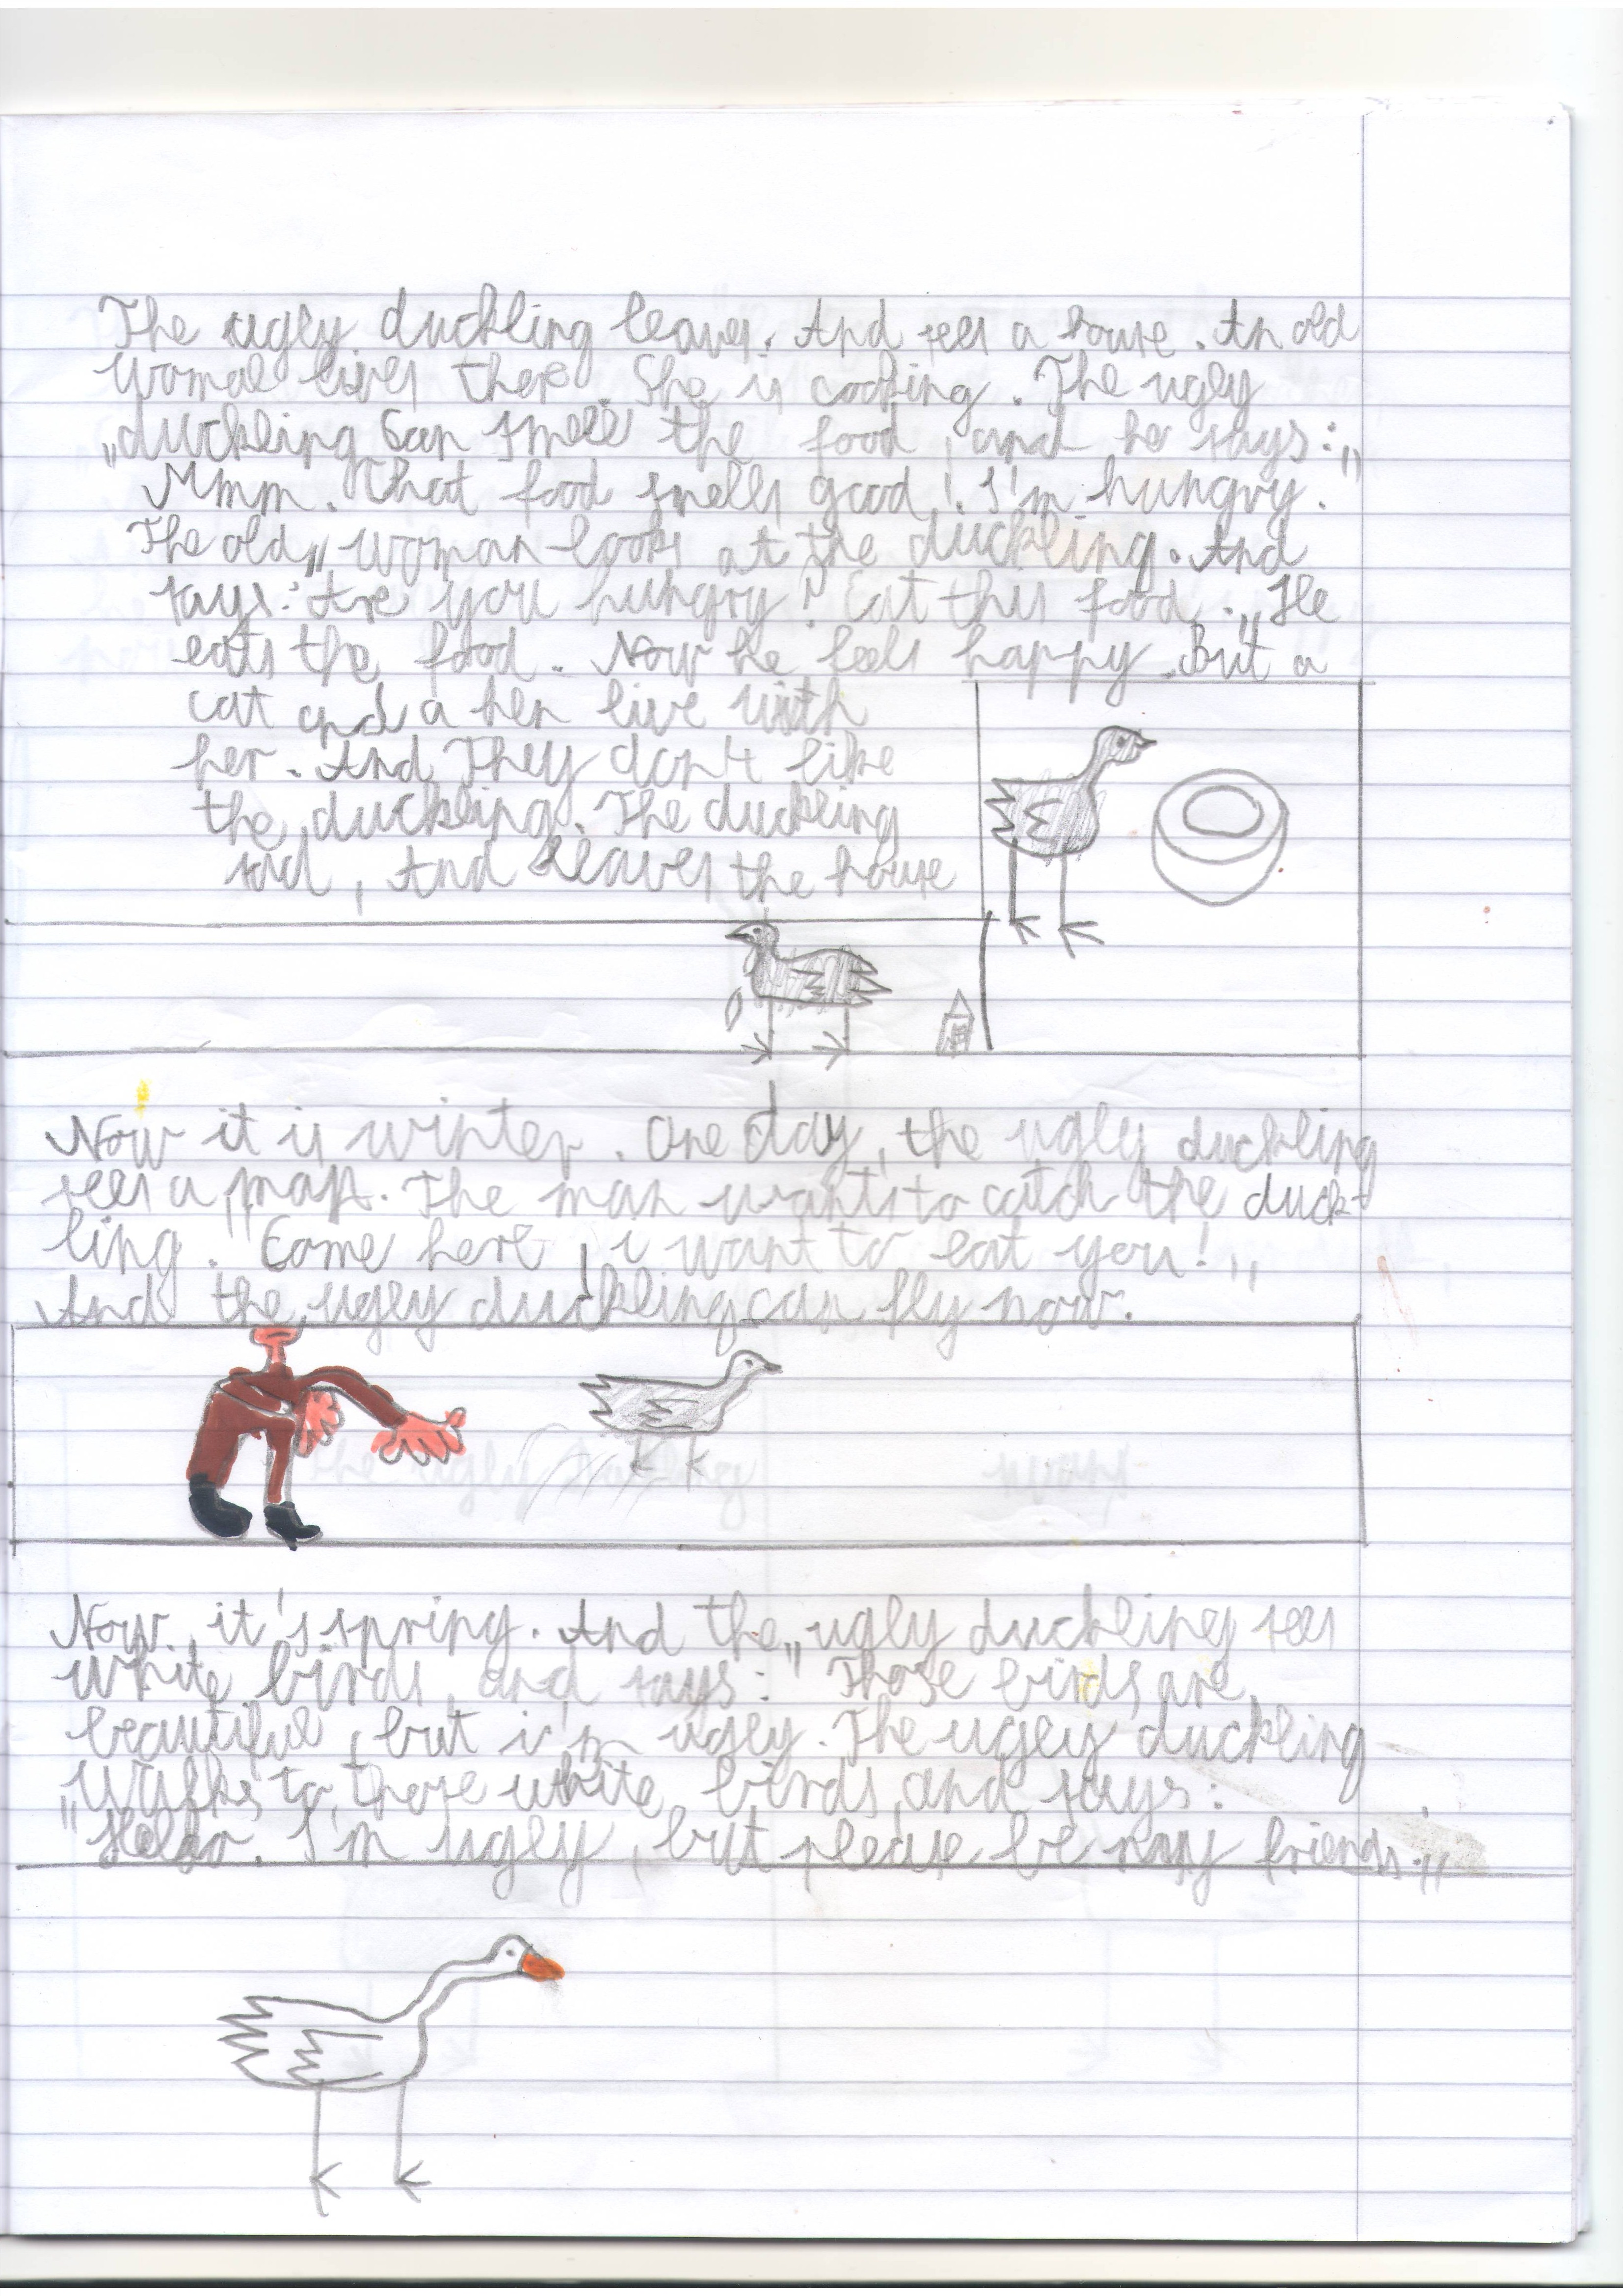 The ugly duckling leaves. And sees a house. An old
woman lives there. She is cooking. The ugly
duckling can smell the food, and he says:„
„Mmm. That food smells good! I'm hungry.
The old„ woman looks at the duckling. And
says: "Are you hungry? Eat this food.„ He
eats the food. Now he feels happy. But a
cat and a hen live with
her. And They don't like
the duckling. The duckling
sad, And Leaves the house
Now it is winter. One day, the ugly duckling
sees a man. The man wants to catch the duck-
ling. "Come here, i want to eat you!„
And the ugly duckling can fly now.
Now, it's spring. And the„ ugly duckling sees
white birds, and says: "Those birds are
beautiful, but i'm ugly. The ugly duckling
walks to those white birds, and says:
"Hello. I'm ugly, but please be my friends.„